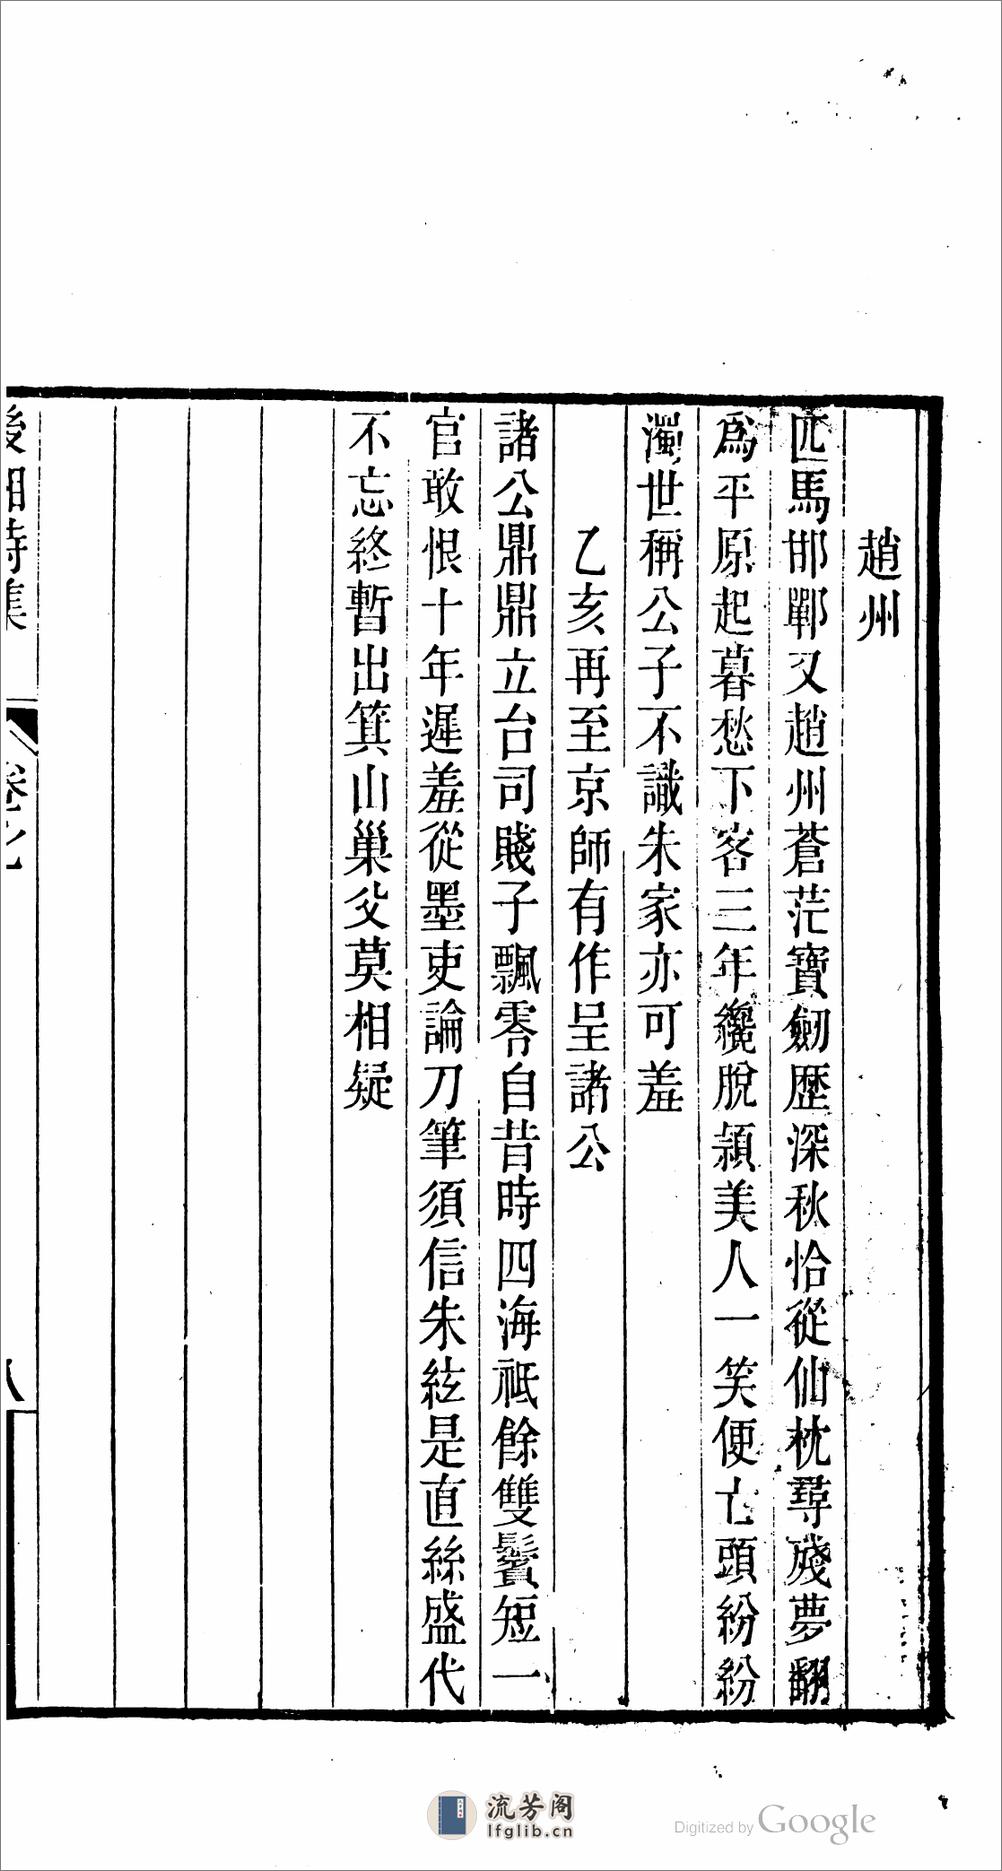 趙州
匹馬邯鄲又趙州蒼茫寶劒歷深秋恰從仙枕尋殘夢翻
爲平原起暮愁下客三年纔脫穎美人一笑便亡頭紛紛
濁世稱公子不識朱家亦可羞
乙亥再至京師有作呈諸公
諸公鼎鼎立台司賤子飄零自昔時四海祗餘雙鬢短一
官敢恨十年遲羞從墨吏論刀筆須信朱絃是直絲盛代
不忘終暫出箕山巢父莫相疑
後湘詩集
卷七
八
流芳阁
lfglib.cn
Digitized by Google